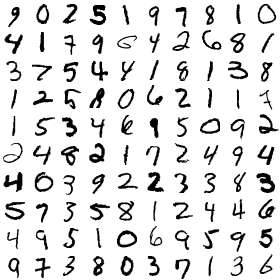 9 0 2 5 1 9 7 8 1 0
4 1 7 9 6 4 2 6 8 1
3 7 5 4 4 1 8 1 3 8
1 2 5 8 0 6 2 1 1 7
1 5 3 4 6 9 5 0 9 2
2 4 8 2 1 7 2 4 9 4
4 0 3 9 2 2 3 3 8 3
5 7 3 5 8 1 2 4 4 6
4 9 5 1 0 6 9 5 9 5
9 7 3 8 0 3 7 1 3 6